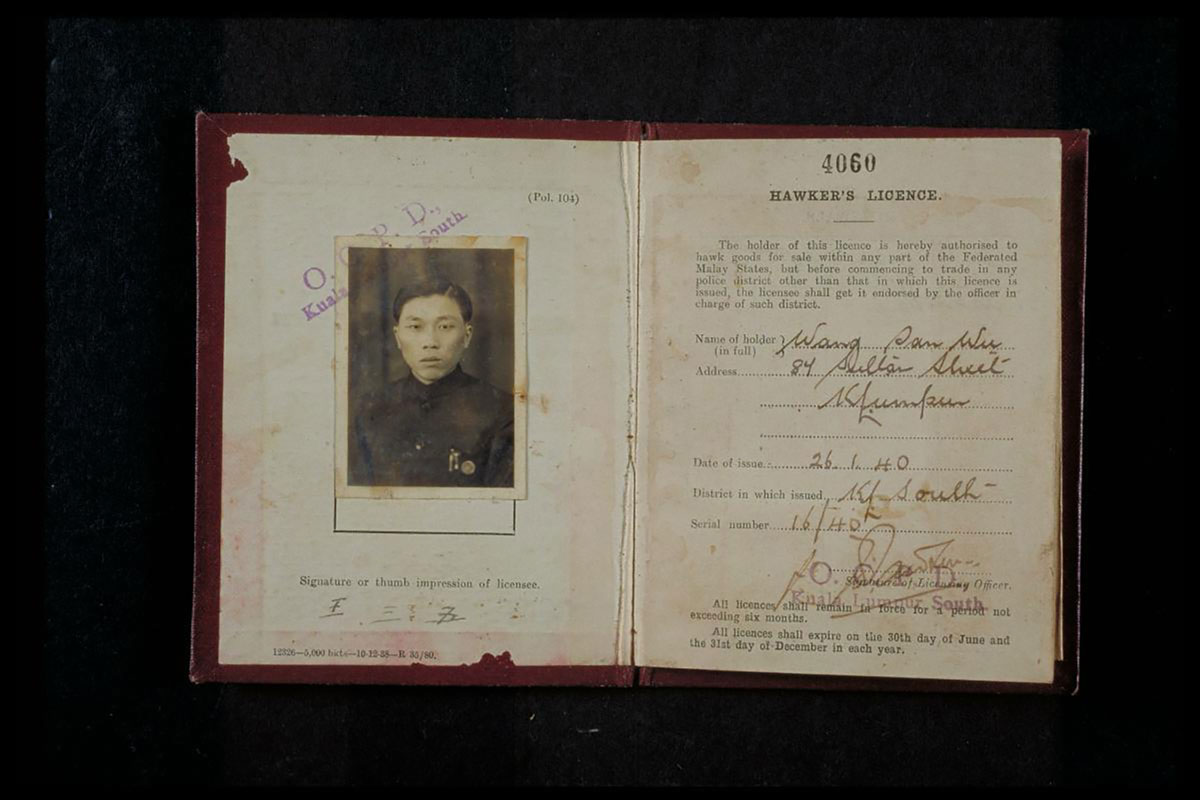 (Pol. 104)
O. C. P. D.,
Kuala Lumpur South
Signature or thumb impression of licensee.
王 三 五
12326—5,000 bkts—10-12-38—R 35/80.
4060
HAWKER'S LICENCE.
The holder of this licence is hereby authorised to
hawk goods for sale within any part of the Federated
Malay States, but before commencing to trade in any
police district other than that in which this licence is
issued, the licensee shall get it endorsed by the officer in
charge of such district.
Name of holder } Wang San Wu
(in full)
Address 84 Street
K Lumpur
Date of issue 26 1 40
District in which issued KL South
Serial number 16/40
O. C. P. D.
Signature of Licensing Officer.
Kuala Lumpur South
All licences shall remain in force for a period not
exceeding six months.
All licences shall expire on the 30th day of June and
the 31st day of December in each year.